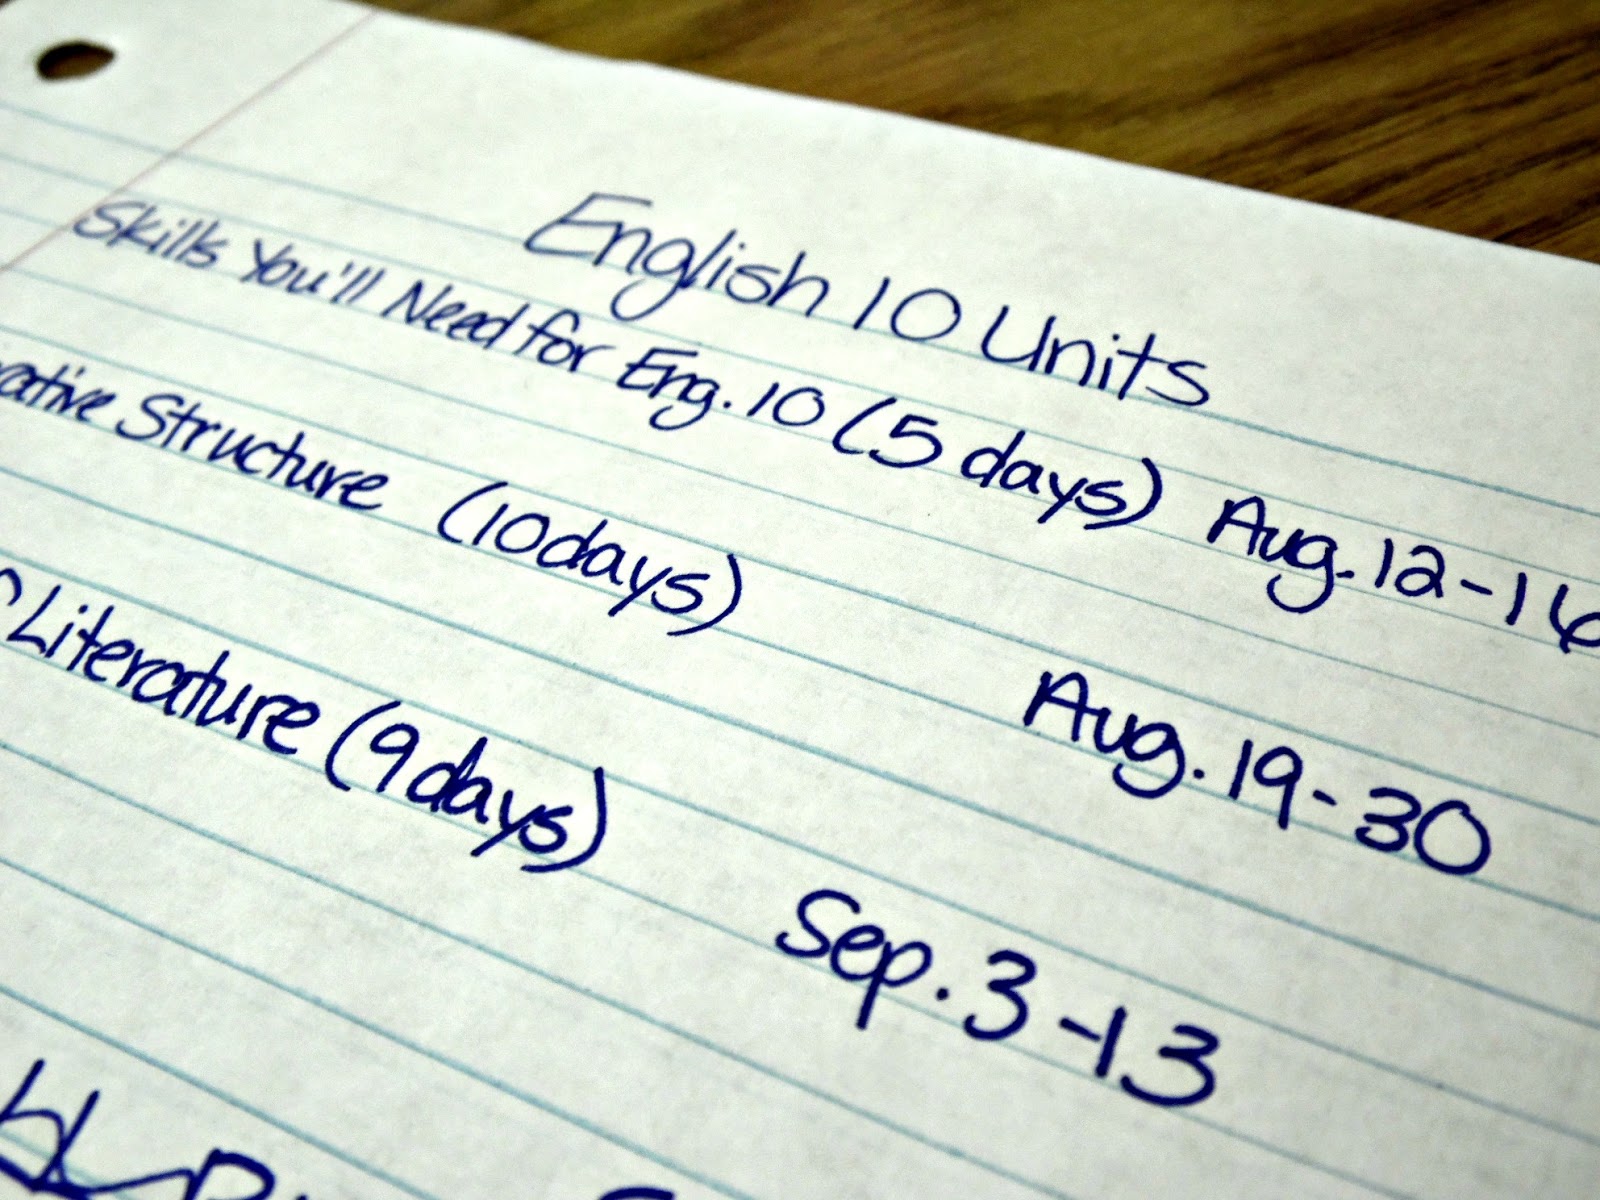 English 10 Units
Skills You'll Need for Eng. 10 (5 days) Aug. 12-16
Structure (10 days) Aug. 19-30
Literature (9 days) Sep. 3-13